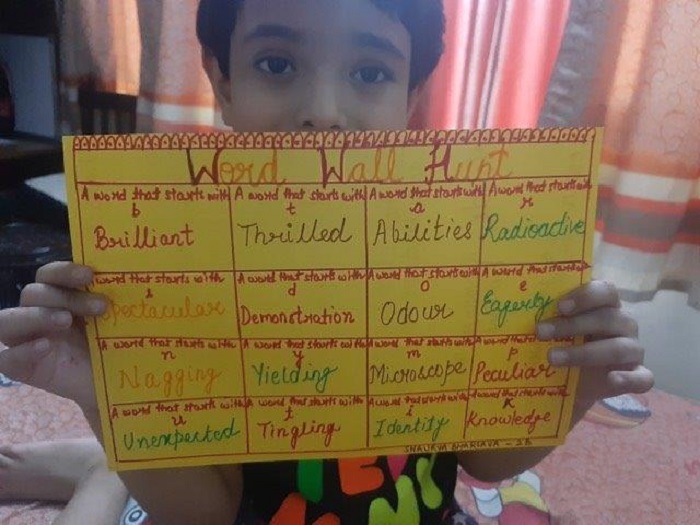 Word Wall Hunt
A word that starts with b
Brilliant
A word that starts with t
Thrilled
A word that starts with a
Abilities
A word that starts with r
Radioactive
A word that starts with s
Spectacular
A word that starts with d
Demonstration
A word that starts with o
Odour
A word that starts with e
Eagerly
A word that starts with n
Nagging
A word that starts with y
Yielding
A word that starts with m
Microscope
A word that starts with p
Peculiar
A word that starts with u
Unexpected
A word that starts with t
Tingling
A word that starts with i
Identity
A word that starts with K
Knowledge